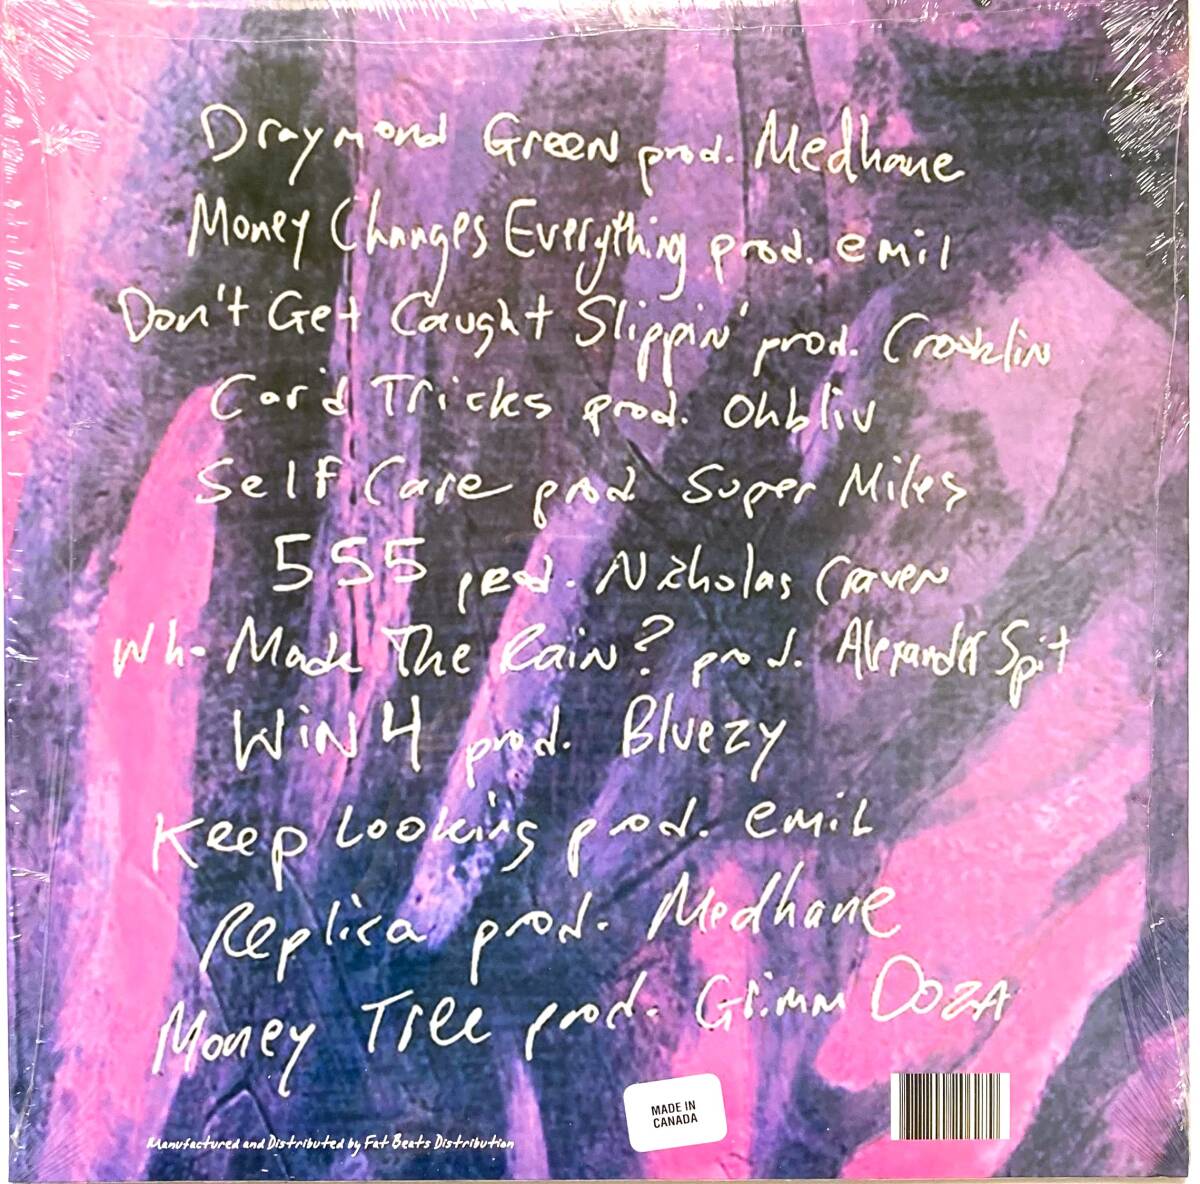 Draymond Green prod. Medhane
Money Changes Everything prod. emil
Don't Get Caught Slippin' prod. Crooklin
Card Tricks prod. Ohbliv
Self Care prod Super Miles
555 prod. Nicholas Craven
Who Made The Rain? prod. Alexander Spit
WiN 4 prod. Bluezy
Keep Looking prod. emil
Replica prod. Medhane
Money Tree prod. Grimm Doza
MADE IN
CANADA
Manufactured and Distributed by Fat Beats Distribution